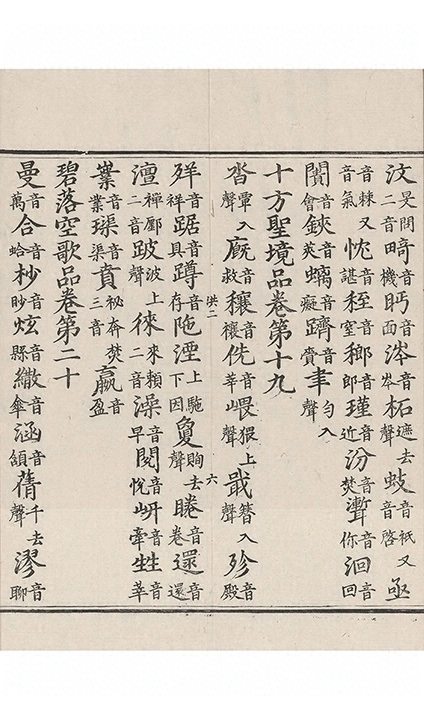 汶旻問二音畸音機眄音面涔音岑柘遮去聲蚑音祇又音啓亟
音棘又音氣忱音諶秷音窒音郎瑾音近汾音焚音你洄音回
闠音會鋏音英螭音癡躋音賫聿勻入聲
十方聖境品卷第十九
沓覃入聲廐音救穰音穰侁音莘嵔猥上聲戢簪入聲殄音殿
洪二 六
音祥踞音具蹲音存陁湮上駞下因敻去聲睠音卷還音還
澶禪廛二音跛波上聲徠來賴二音澡音早閱音悅岍音牽甡音莘
業音業璖音渠賁祕奔焚三音嬴音盈
碧落空歌品卷第二十
曼音萬合音蛤杪音眇炫音縣繖音傘涵音頷蒨千去聲漻音聊